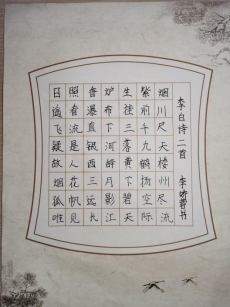 李白诗二首
日照香炉生紫烟
遥看瀑布挂前川
飞流直下三千尺
疑是银河落九天
故人西辞黄鹤楼
烟花三月下扬州
孤帆远影碧空尽
唯见长江天际流
李娇 书